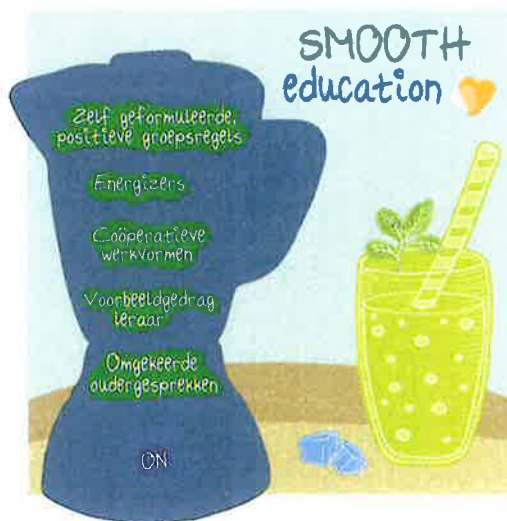 SMOOTH
education
Zelf geformuleerde,
positieve groepsregels
Energizers
Coöperatieve
werkvormen
Voorbeeldgedrag
leraar
Omgekeerde
oudergesprekken
ON